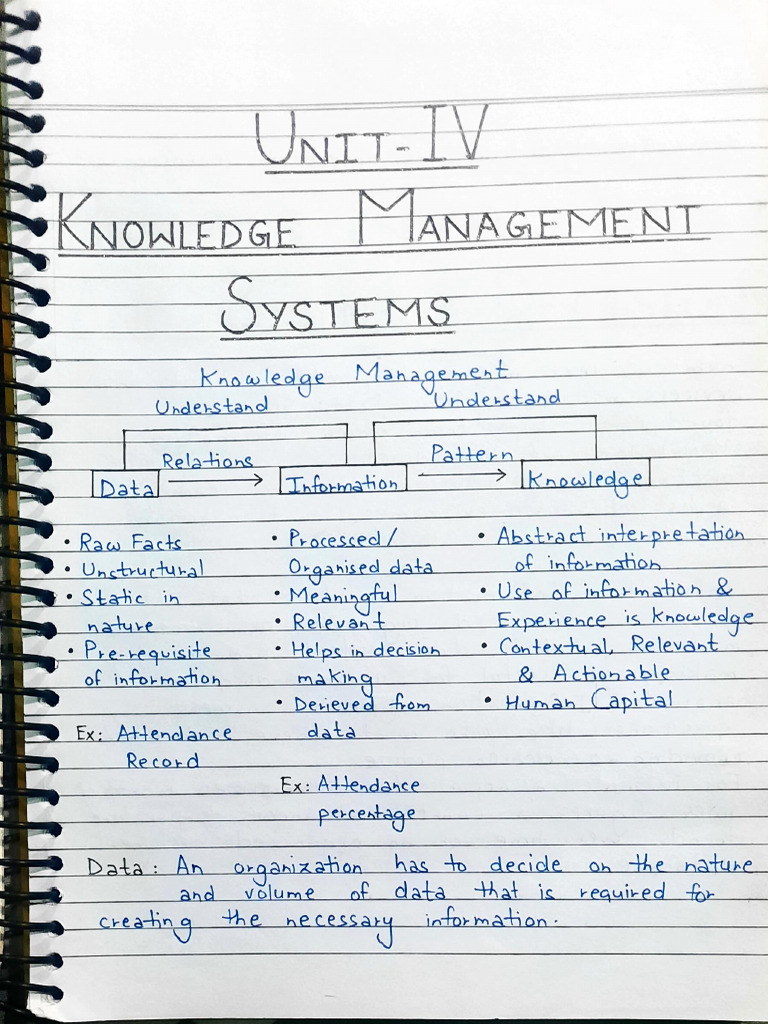 UNIT-IV
KNOWLEDGE MANAGEMENT
SYSTEMS
Knowledge Management
Understand Understand
Relations Pattern
Data Information Knowledge
• Raw Facts
• Unstructural
• Static in
nature
• Pre-requisite
of information
Ex: Attendance
Record
• Processed/
Organised data
• Meaningful
• Relevant
• Helps in decision
making
• Derieved from
data
Ex: Attendance
percentage
• Abstract interpretation
of information
• Use of information &
Experience is knowledge
• Contextual, Relevant
& Actionable
• Human Capital
Data: An organization has to decide on the nature
and volume of data that is required for
creating the necessary information.